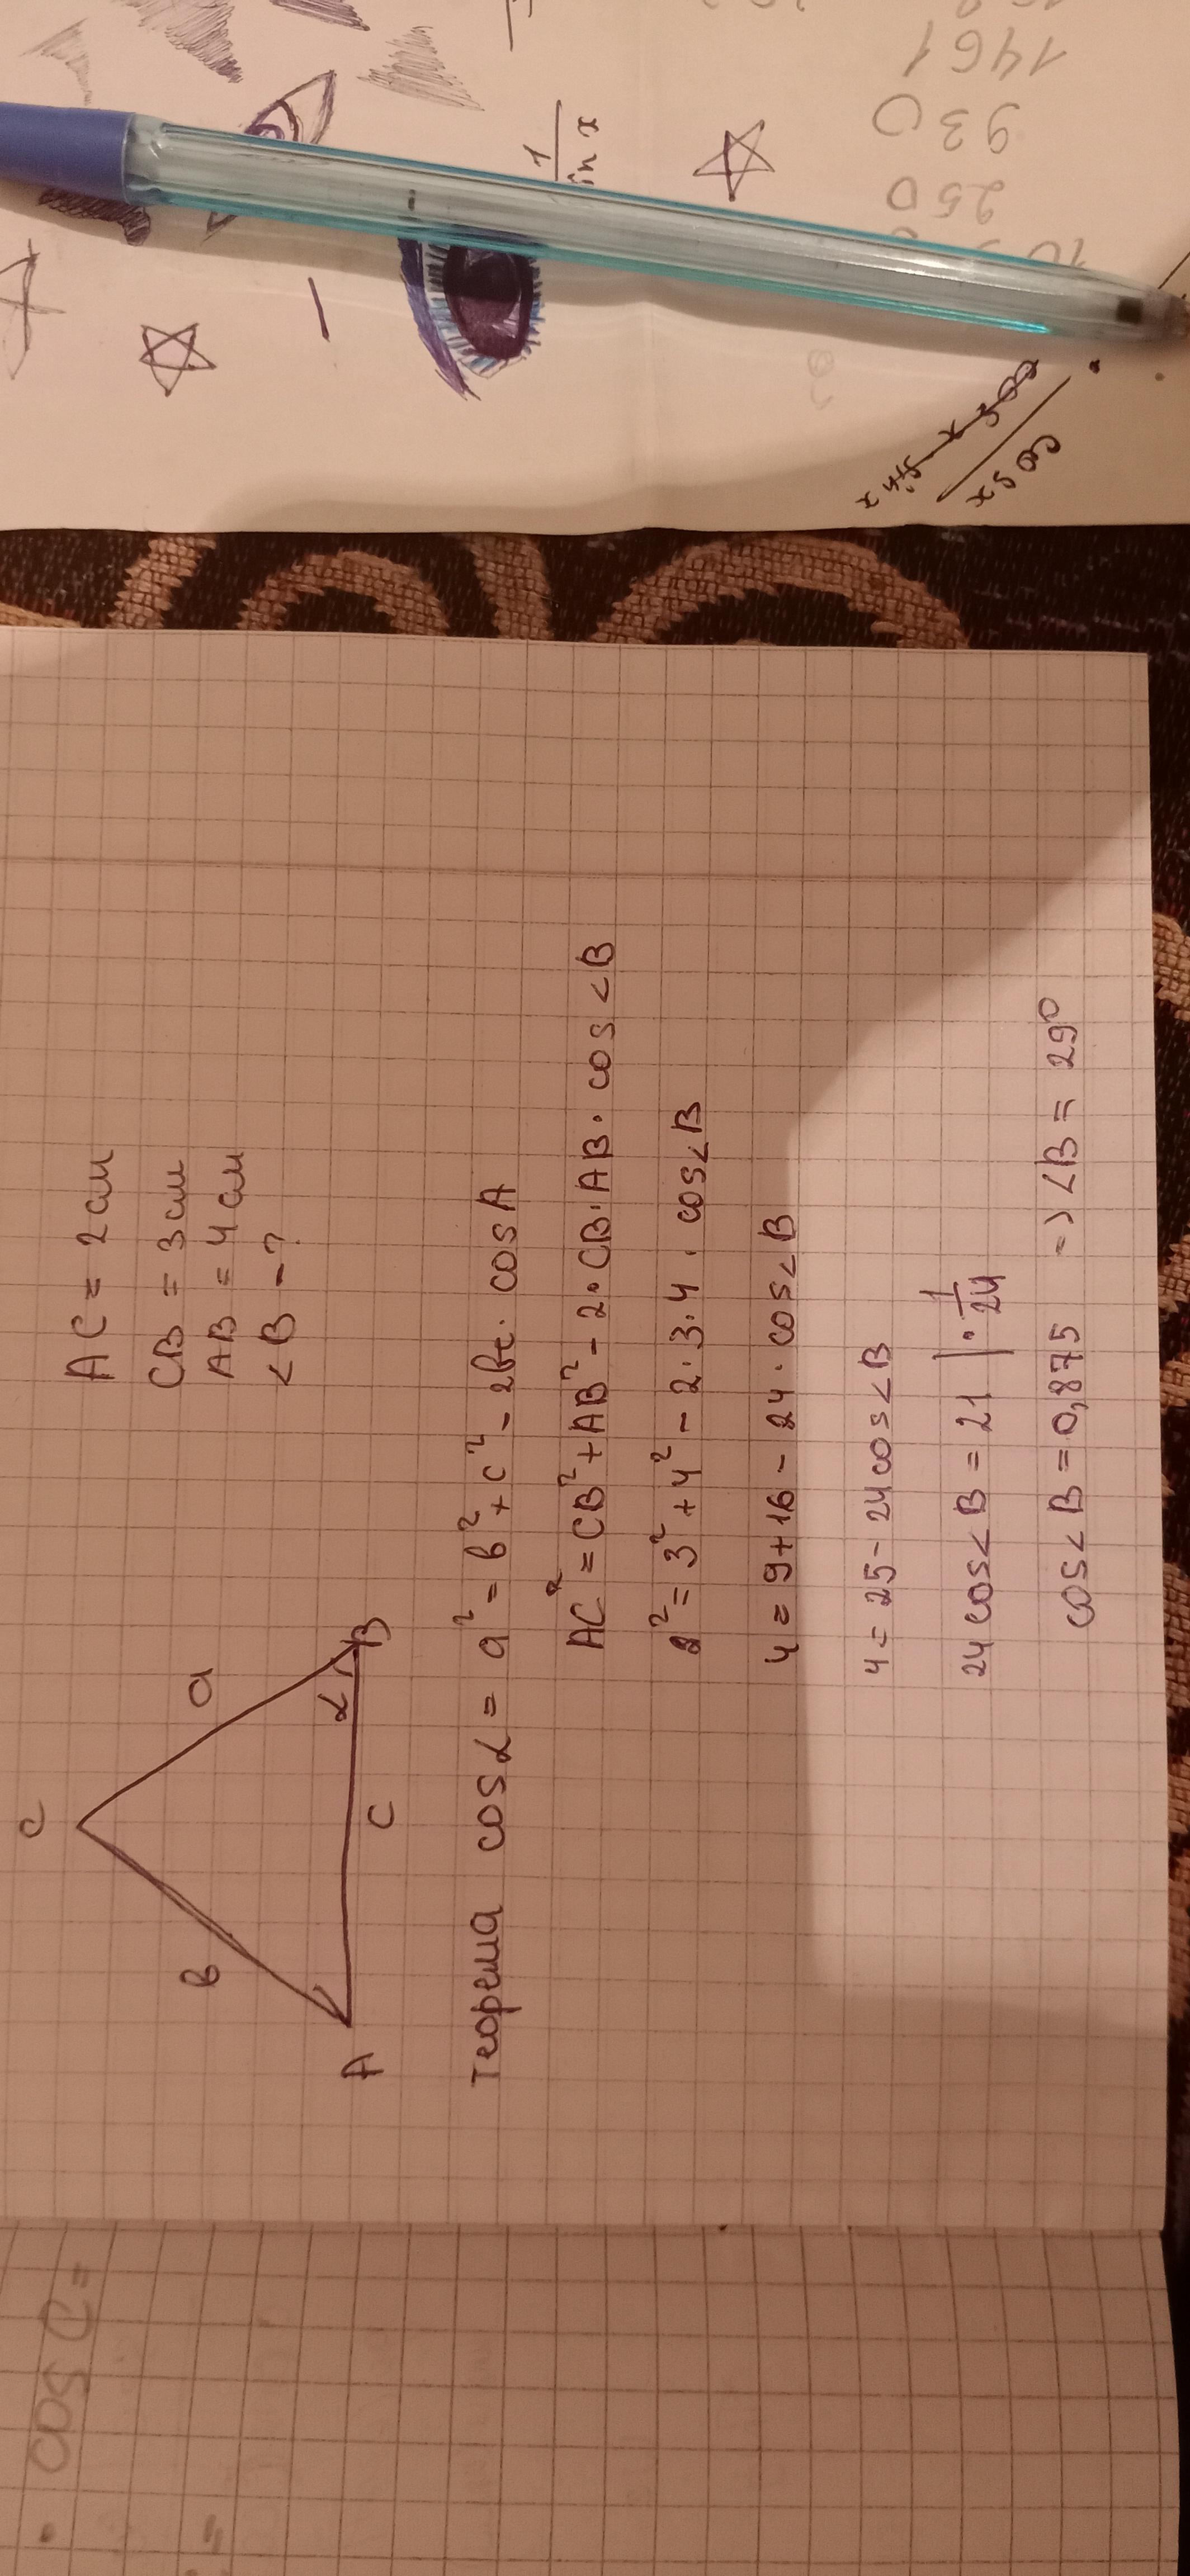 C
a
b
α
A
C
B
AC = 2 см
CB = 3 см
AB = 4 см
<B - ?
Теорема cosα = a² = b² + c² - 2bc · cos A
AC² = CB² + AB² - 2 · CB · AB · cos <B
2² = 3² + 4² - 2 · 3 · 4 · cos <B
4 = 9 + 16 - 24 · cos <B
4 = 25 - 24 cos <B
24 cos <B = 21 | · 1/24
cos <B = 0,875 => <B = 29°
1
in x
1461
930
250
cos x
sin x
cos x
cos C =